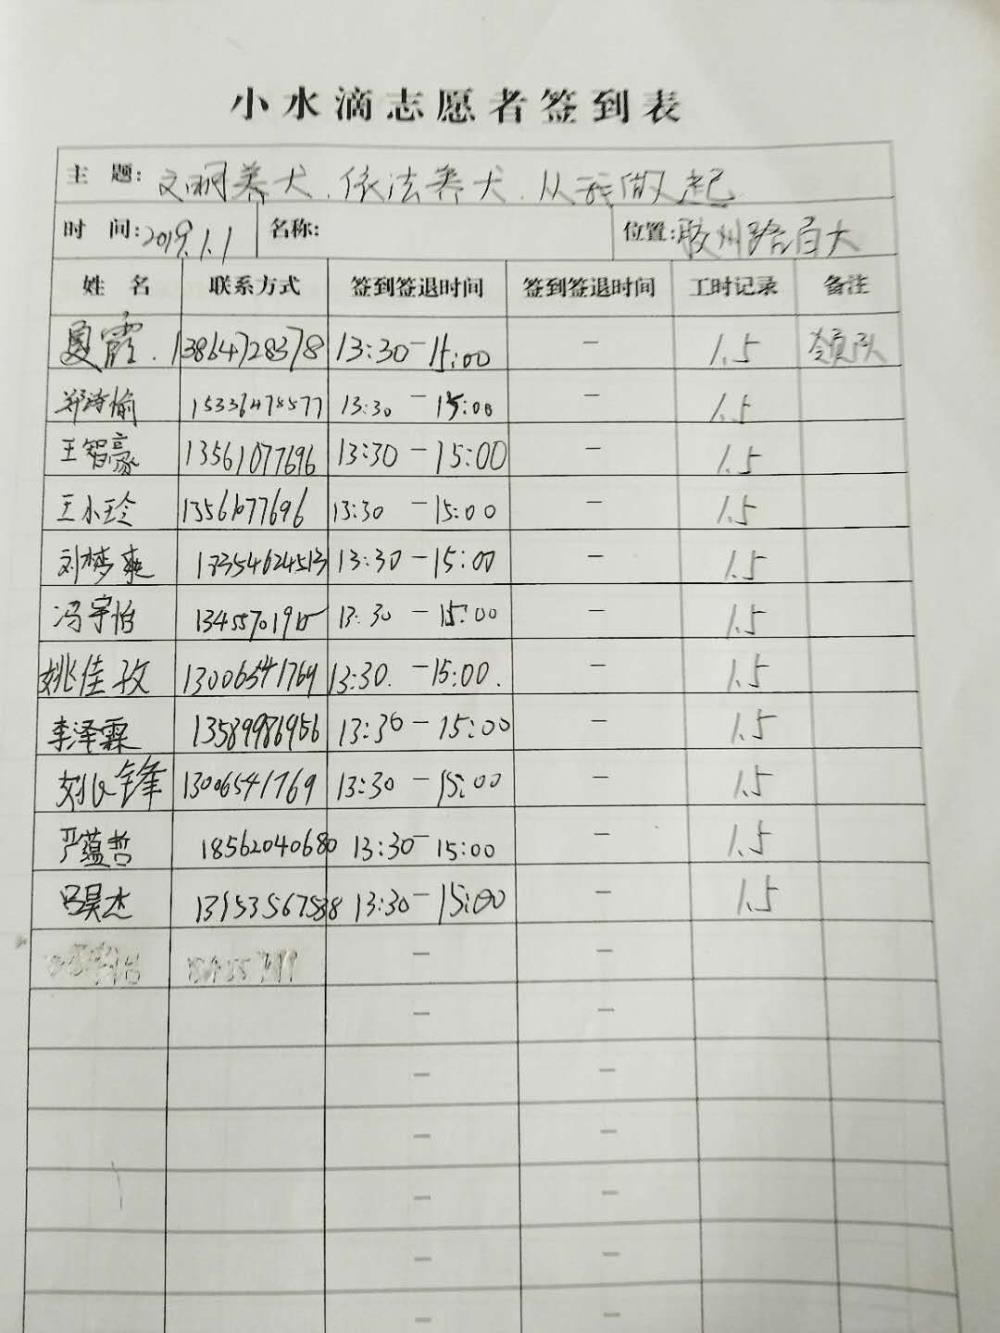 小水滴志愿者签到表
主 题: 文明养犬.依法养犬.从我做起
时 间:2019.1.1 名称: 位置:胶州路百大
姓 名 联系方式 签到签退时间 签到签退时间 工时记录 备注
夏霞. 13864728378 13:30-15:00 - 1.5 领队
郑诗愉 15336478577 13:30 - 15:00 - 1.5
王智豪 13561077696 13:30 - 15:00 - 1.5
王小玲 13561077696 13:30 - 15:00 - 1.5
刘梦爽 17354624513 13:30 - 15:00 - 1.5
冯宇怡 13:30 - 15:00 - 1.5
姚佳孜 13006541769 13:30. - 15:00. - 1.5
李泽霖 13589986956 13:30 - 15:00 - 1.5
锋 13006541769 13:30 - 15:00 - 1.5
严蕴哲 18562040680 13:30 - 15:00 - 1.5
吕昊杰 13153567588 13:30 - 15:00 - 1.5
- -
- -
- -
- -
- -
- -
- -